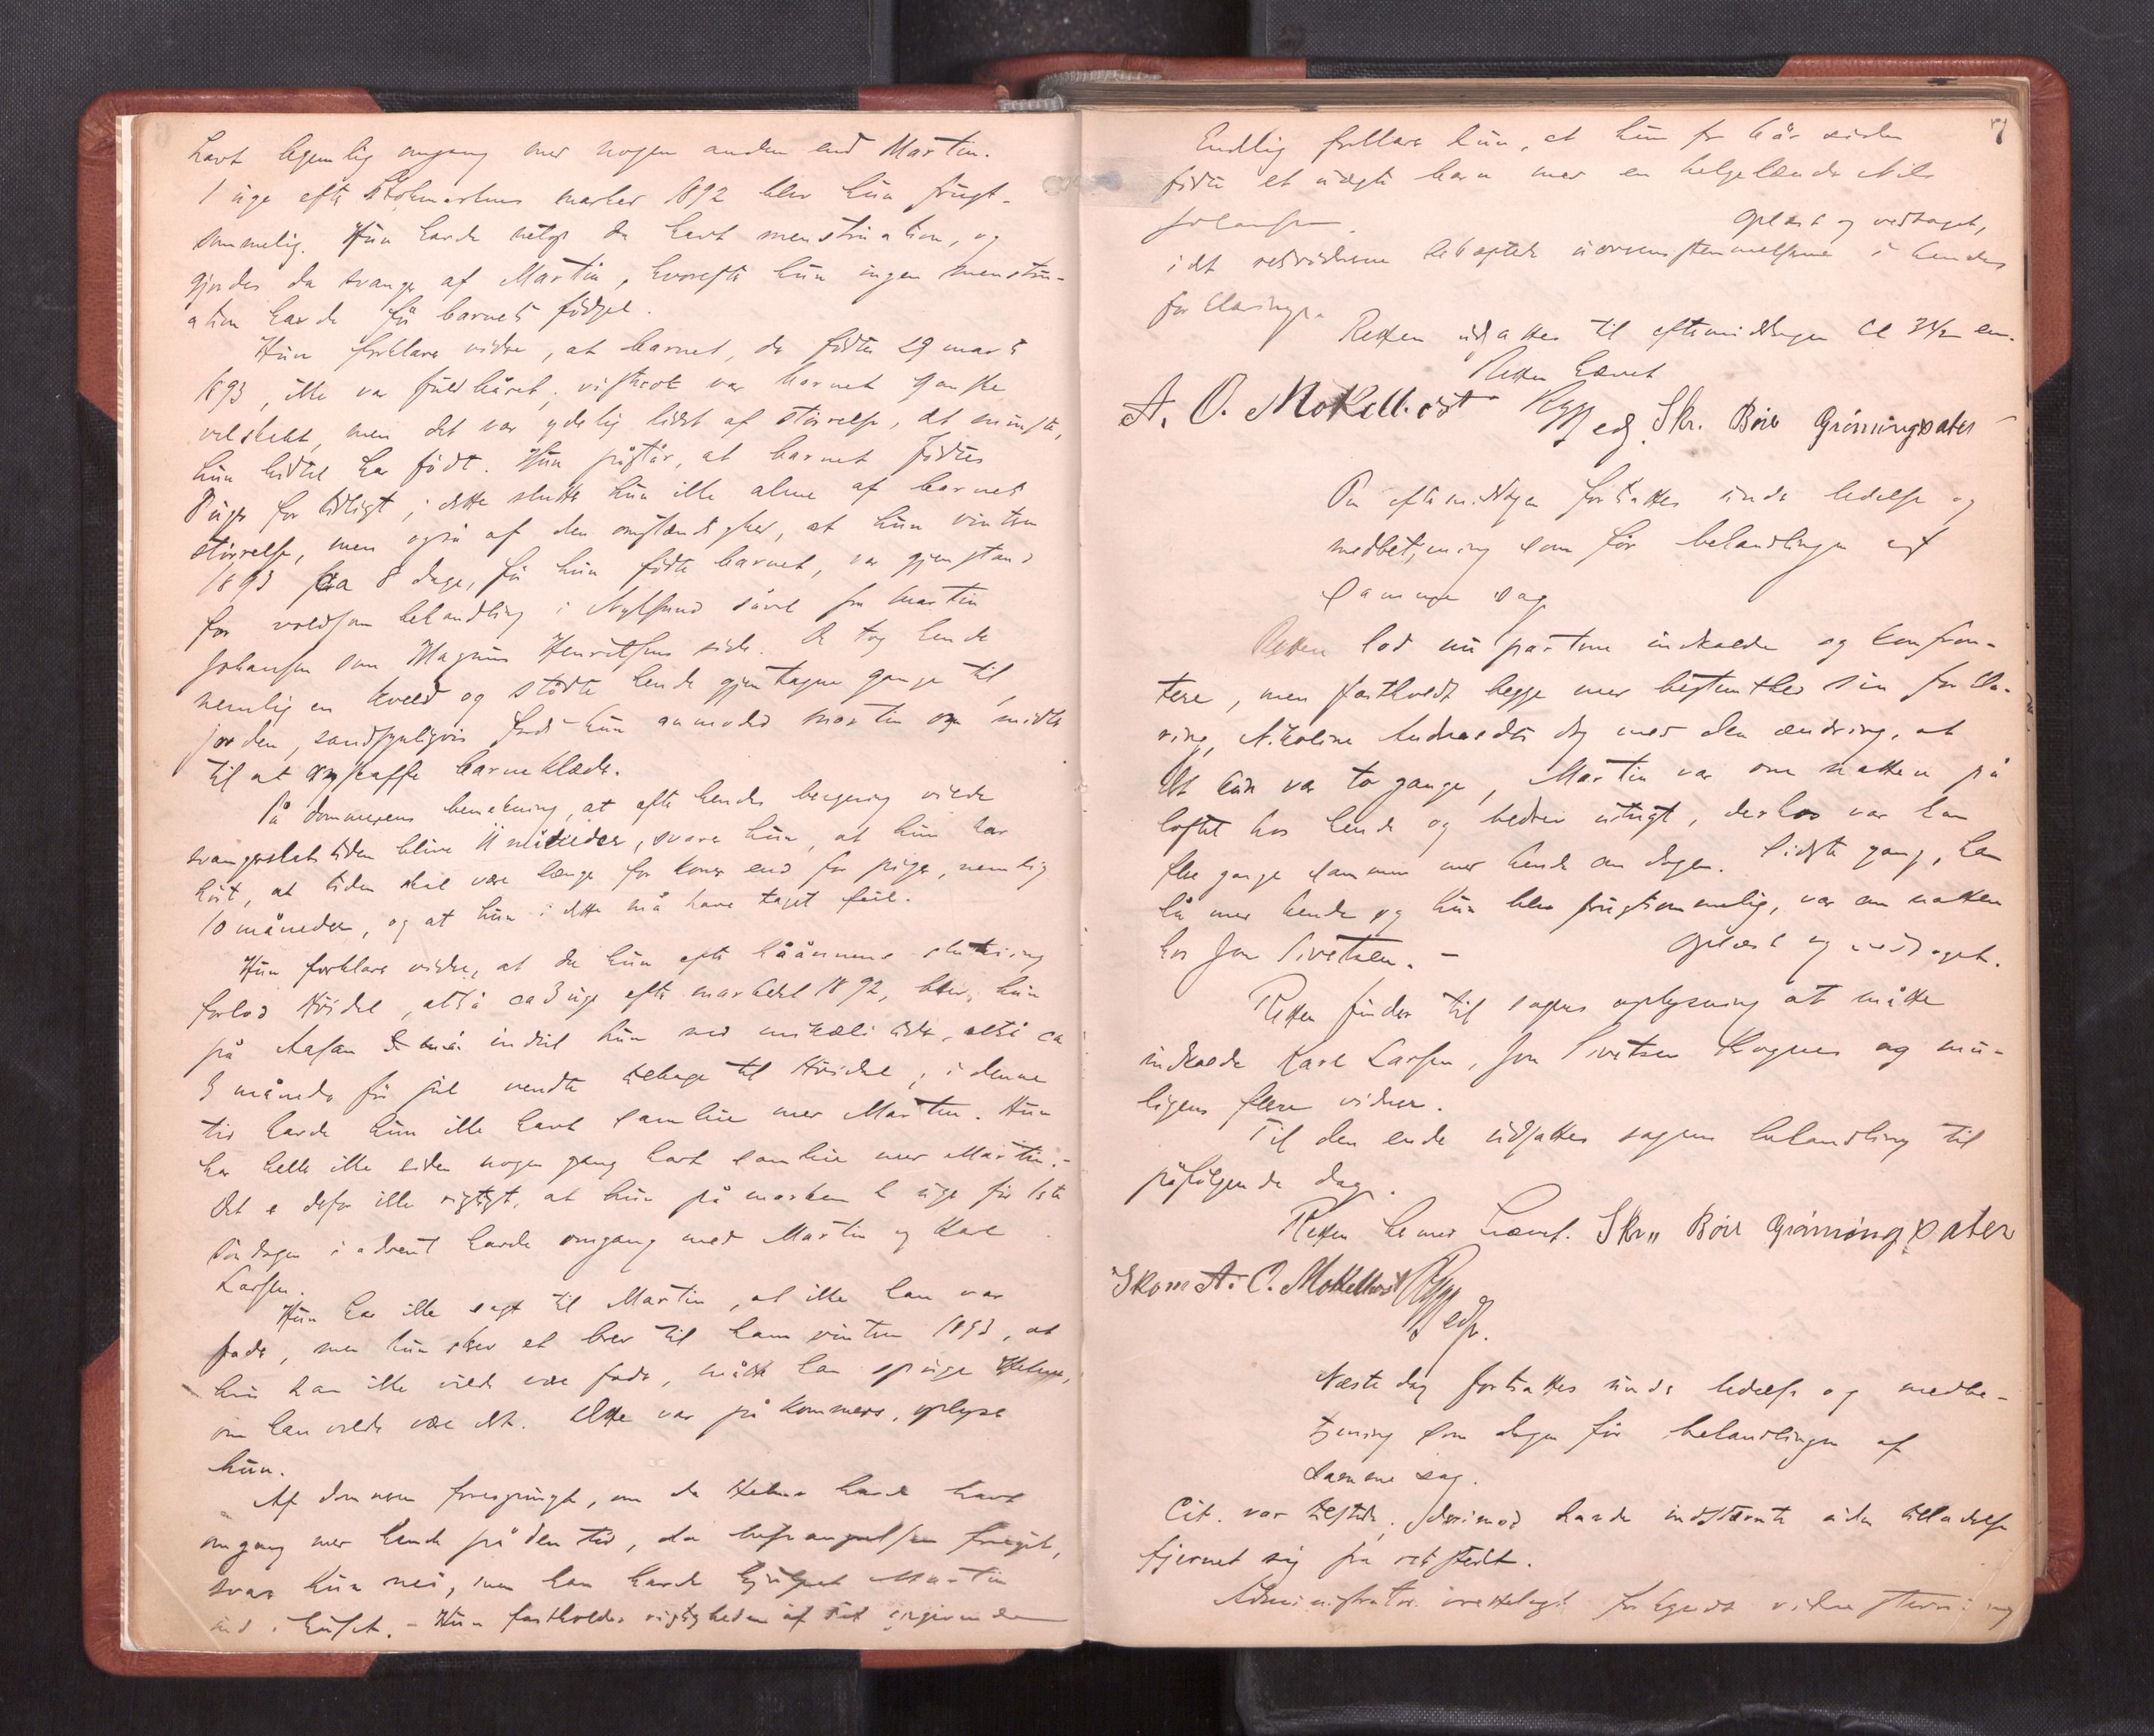 havt legemlig omgang med nogen anden end Martin.
1 uge efter Stokmarknes marked 1892 blev hun frugt-
sommelig. Hun havde netop da havt menstruation, og
gjordes da svanger af Martin, hvorefter hun ingen menstru-
ation havde før barnets fødsel.
Hun forklarer videre, at barnet, der fødtes 29 marts
1893, ikke var fuldbåret; vistnok var barnet ganske
velskabt, men det var ydelig lidet af størrelse, det mindste,
hun hidtil har født. Hun påstår, at barnet fødtes
uger for tidligt; dette slutter hun ikke alene af barnets
størrelse, men også af den omstændighed, at hun vinteren
1893 ca 8 dage, før hun fødte barnet, var gjenstand
for voldsom behandling i Nyksund såvel fra Martin
Johansen som Magnus Henriksens side. De tog hende
nemlig en kveld og stødte hende gjentagne gange til
jorden, sandsynligvis fordi hun anmodede Martin om midler
til at anskaffe barneklæder.
På dommerens bemerkning, at efter hendes beregning vilde
svangerskabstiden blive 11 måneder, svarer hun, at hun har
hørt, at tiden skal være længer for koner end for piger, nemlig
10 måneder, og at hun i dette må have taget feil.
Hun forklarer videre, at da hun efter håånnens slutning
forlod Høidal, altså ca 3 uger efter markedet 1892, blev hun
på Aasan indtil hun ved mikæli tider, altså ca
3 måneder før jul vendte tilbage til Høidal; i denne
tid havde hun ikke havt samleie med Martin. Hun
har heller ikke siden nogen gang havt samleie med Martin.-
Det er derfor ikke rigtigt, at hun på marken 2 uger før 1ste
søndagen i advent havde omgang med Martin og Karl
Larsen.
Hun har ikke sagt til Martin, at ikke han var
fader, men hun skrev et brev til ham vinteren 1893, at
hvis han ikke vilde være fader, måtte han spørge Helmer,
om han vilde være det. Dette var på kommers, oplyser
hun.
Af dommeren forespurgt, om da Helmer havde havt
omgang med hende på den tid, da besvangrelsen foregik,
svarer hun nei, men han havde hjulpet Martin
ind i huset. - Hun fastholder rigtigheden af det angivende
7
Endelig forklarer hun, at hun for 6 år siden
fødte et uægte barn med en helgelænder Nils
Johansen.
Oplæst og vedtaget,
idet retsvidnerne bekræftede uoverensstemmelserne i hendes
forklaringer.
Retten udsattes til eftermiddagen Cl 3 1/2 em.
Retten hævet
A. O. Mokellborst Rygg edf. Skr. Børe Grønningsater
Om eftermiddagen fortsattes under ledelse og
medbetjening som før behandlingen af
samme sag
Retten lod nu parterne indkalde og konfron-
tere, men fastholdt begge med bestemthed sin forkla-
ring, Nikoline Andreasdtr dog med den ændring, at
det kun var to gange, Martin var om natten på
loftet hos hende og bedrev utugt, derhos var han
flere gange sammen med hende om dagen. Sidste gang, han
lå med hende og hun blev frugtsommelig, var om natten
hos Jon Sivertsen. -
Oplæst og vedtaget.
Retten finder til sagens oplysning at måtte
indkalde Karl Larsen, Jon Sivertsen Krognes og mu-
ligens flere vidner.
Til den ende udsattes sagens behandling til
påfølgende dag.
Retten hermed hævet. Skr,, Børe Grønningsater
Skom A. O. Mokellborst Rygg
edf.
Næste dag fortsattes under ledelse og medbe-
tjening som dagen før behandlingen af
samme sag.
Cit. var tilstede, derimod havde indstævnte uden tilladelse
fjernet sig fra retsstedet.
Administrator fremlagde